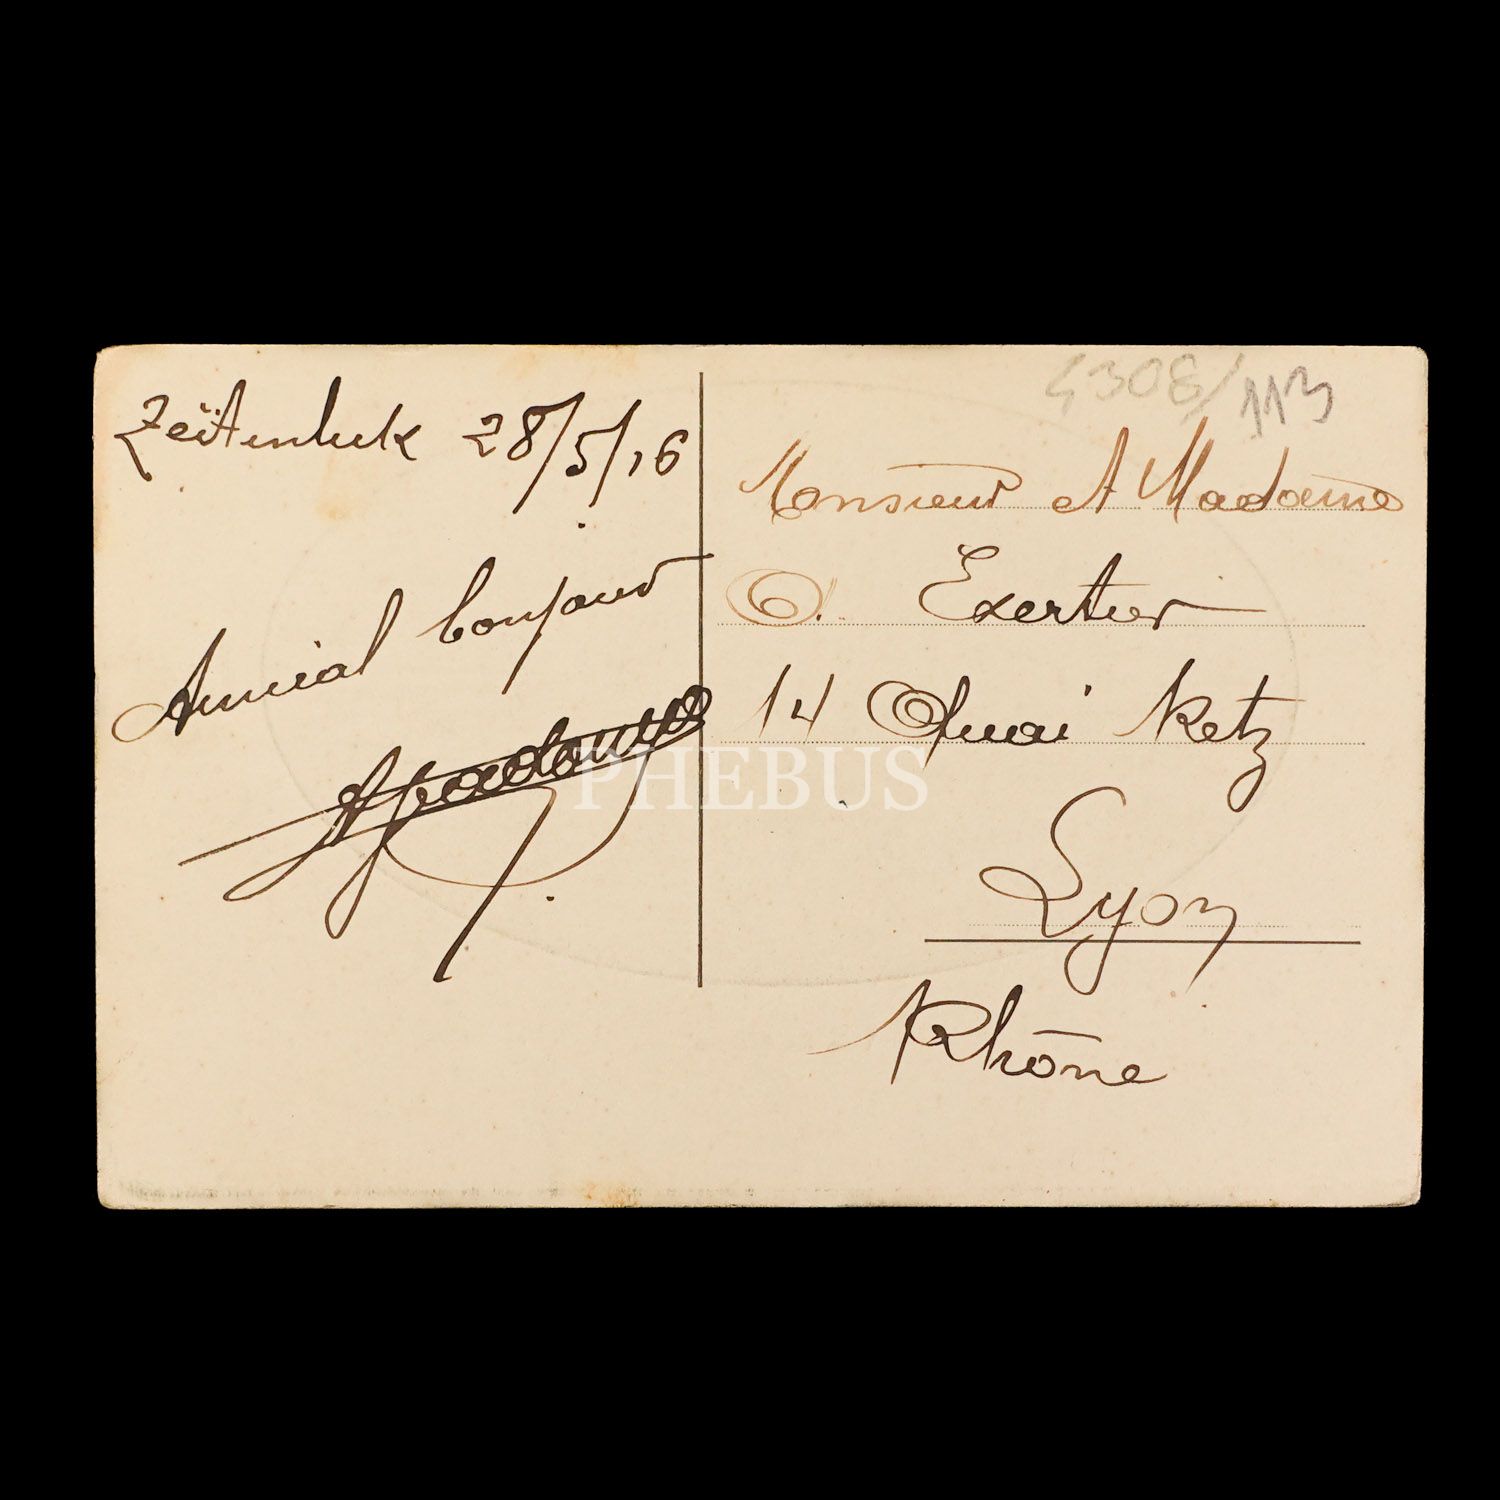 Zeïtenluk 28/5/16
Amical bonjour
4308/113
Monsieur et Madame
O. Exertier
14 Quai Retz
Lyon
Rhône
PHEBUS